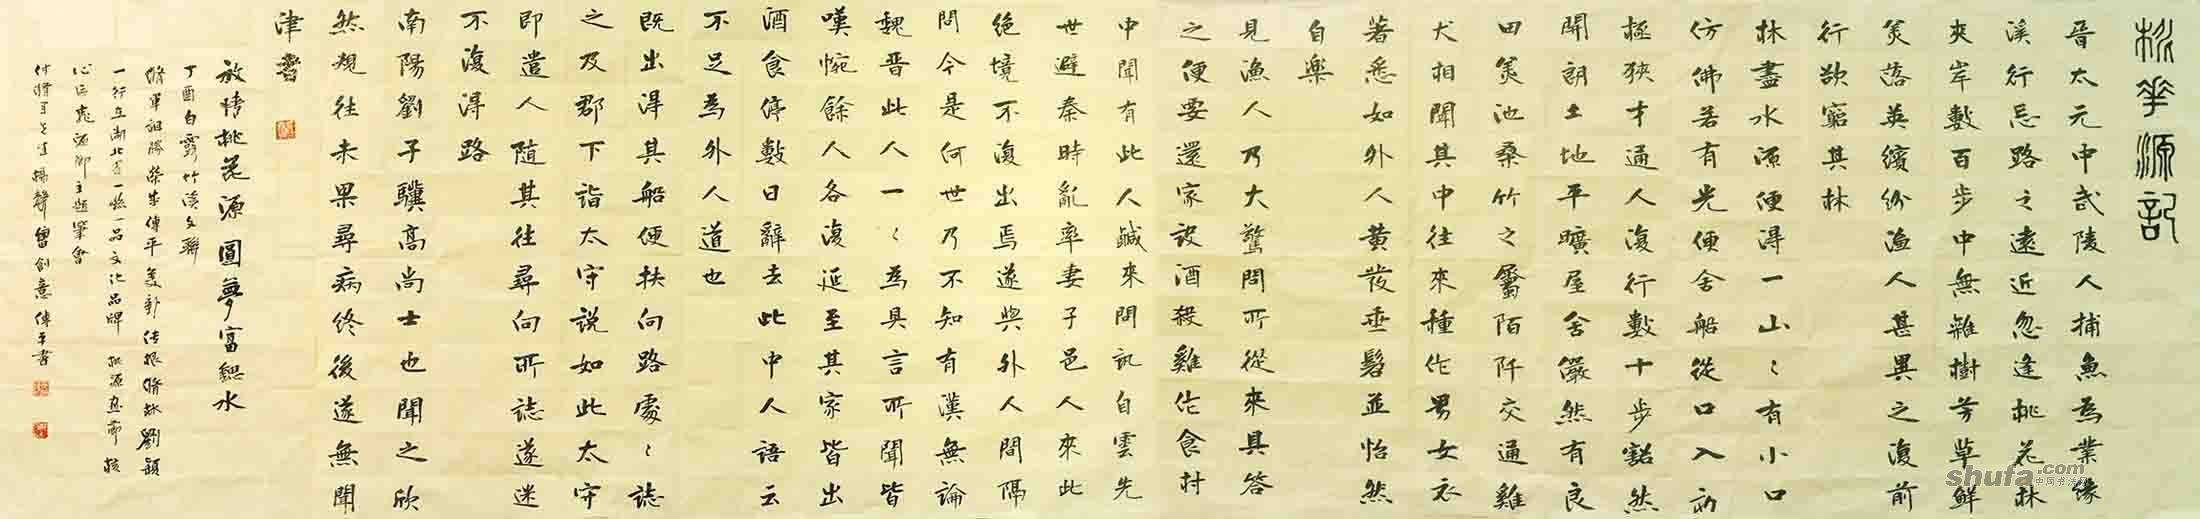 桃華源記
晉太元中武陵人捕魚為業緣
溪行忘路之遠近忽逢桃花林
夾岸數百步中無雜樹芳草鮮
美落英繽紛漁人甚異之復前
行欲窮其林
林盡水源便得一山〻有小口
仿佛若有光便舍船從口入初
極狹才通人復行數十步豁然
開朗土地平曠屋舍儼然有良
田美池桑竹之屬阡陌交通雞
犬相聞其中往來種作男女衣
著悉如外人黃髮垂髫並怡然
自樂
見漁人乃大驚問所從來具答
之便要還家設酒殺雞作食村
中聞有此人鹹來問訊自雲先
世避秦時亂率妻子邑人來此
絕境不復出焉遂與外人間隔
問今是何世乃不知有漢無論
魏晉此人一〻為具言所聞皆
嘆惋餘人各復延至其家皆出
酒食停數日辭去此中人語云
不足為外人道也
既出得其船便扶向路處〻誌
之及郡下詣太守說如此太守
即遣人隨其往尋向所誌遂迷
不復得路
南陽劉子驥高尚士也聞之欣
然規往未果尋病終後遂無聞
津者
放情桃花源圓夢富鄉水
丁酉白露竹溪文聯
shufa.com
中国书法网